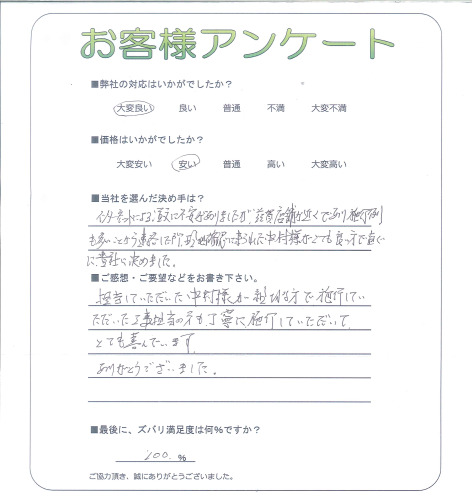 お客様アンケート
■弊社の対応はいかがでしたか？
大変良い 良い 普通 不満 大変不満
■価格はいかがでしたか？
大変安い 安い 普通 高い 大変高い
■当社を選んだ決め手は？
インターネットによる 不安がありましたが、滋賀店舗が近くであり施行例
も多いことから 中村様がとても良い方で直ぐ
に貴社に決めました。
■ご感想・ご要望などをお書き下さい。
担当していただいた中村様が親切な方で施行してい
ただいた工事担当の方も丁寧に施行していただいて
とても喜んでいます。
ありがとうございました。
■最後に、ズバリ満足度は何%ですか？
100. %
ご協力頂き、誠にありがとうございました。